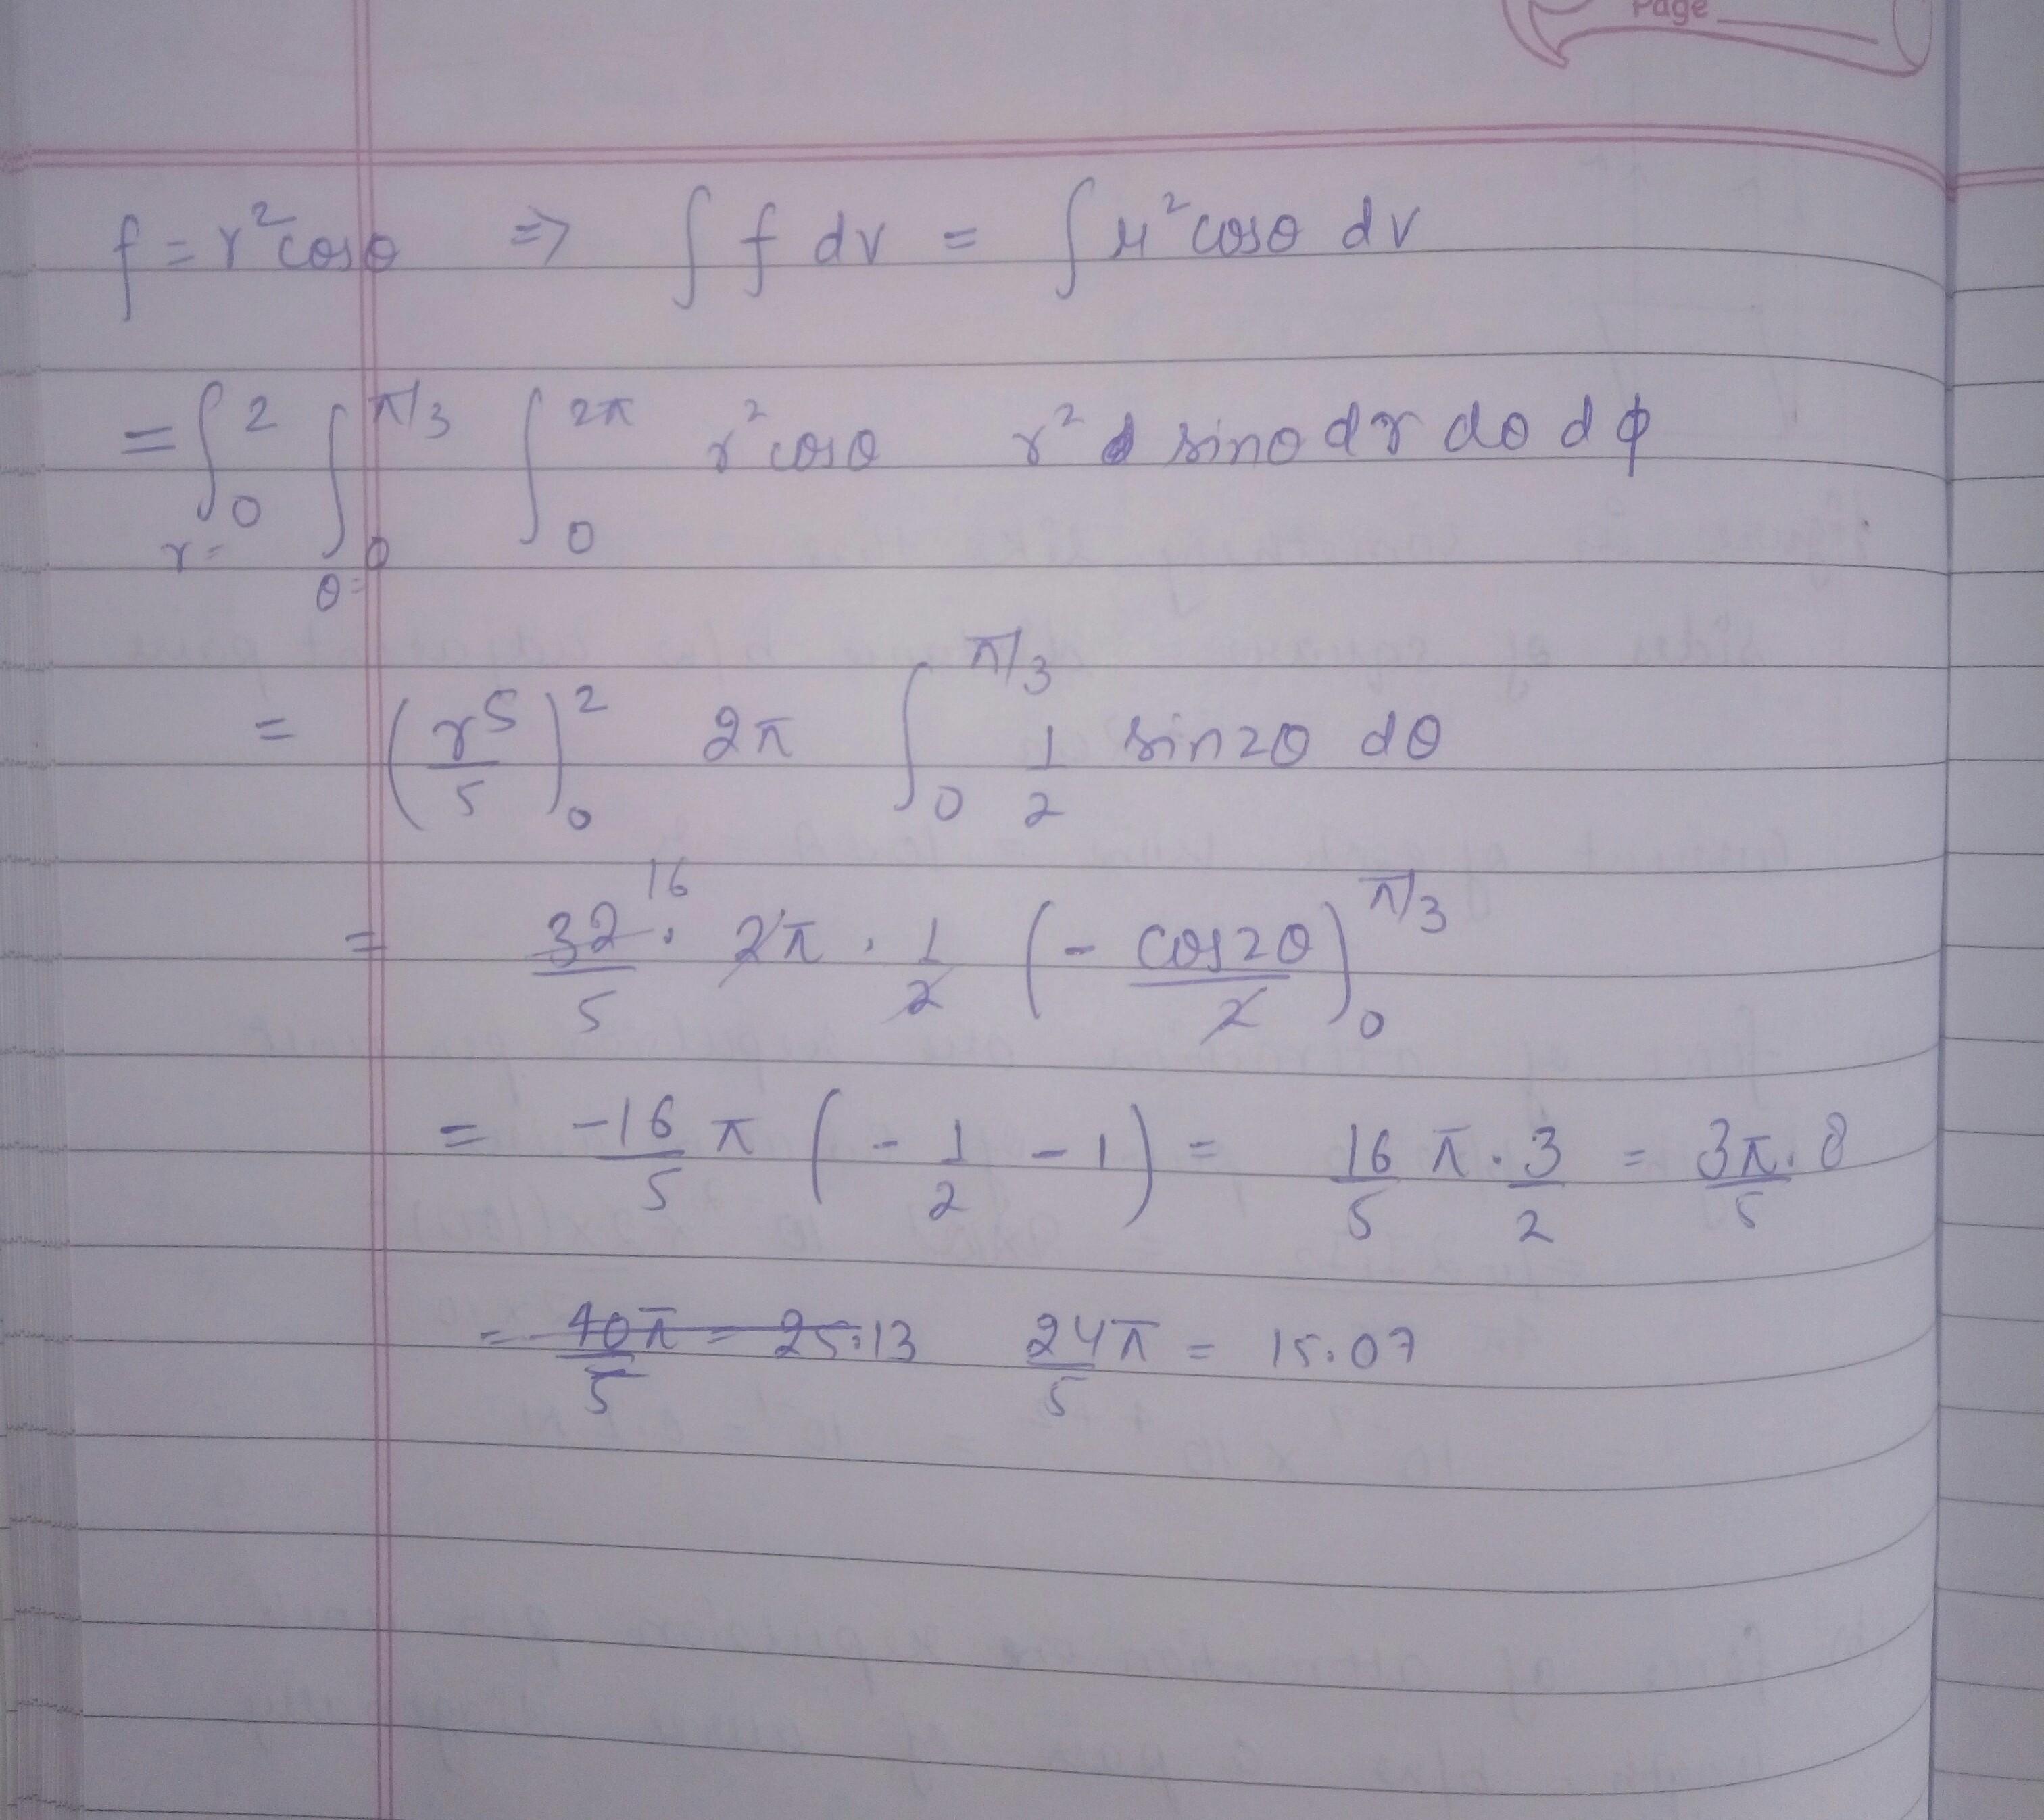 Page
f = r²cosθ ⇒ ∫ f dv = ∫ r² cosθ dv
= ∫₀² ∫₀^π/3 ∫₀^2π r² cosθ r² sinθ dr dθ dφ
r= θ=
= (r⁵/5)₀² 2π ∫₀^π/3 1/2 sin2θ dθ
= 32/5 16 · 2π · 1/2 (- cos2θ/2)₀^π/3
= -16/5 π (- 1/2 - 1) = 16/5 π · 3/2 = 3π/5 · 8
= 40π/5 = 25.13 24π/5 = 15.07